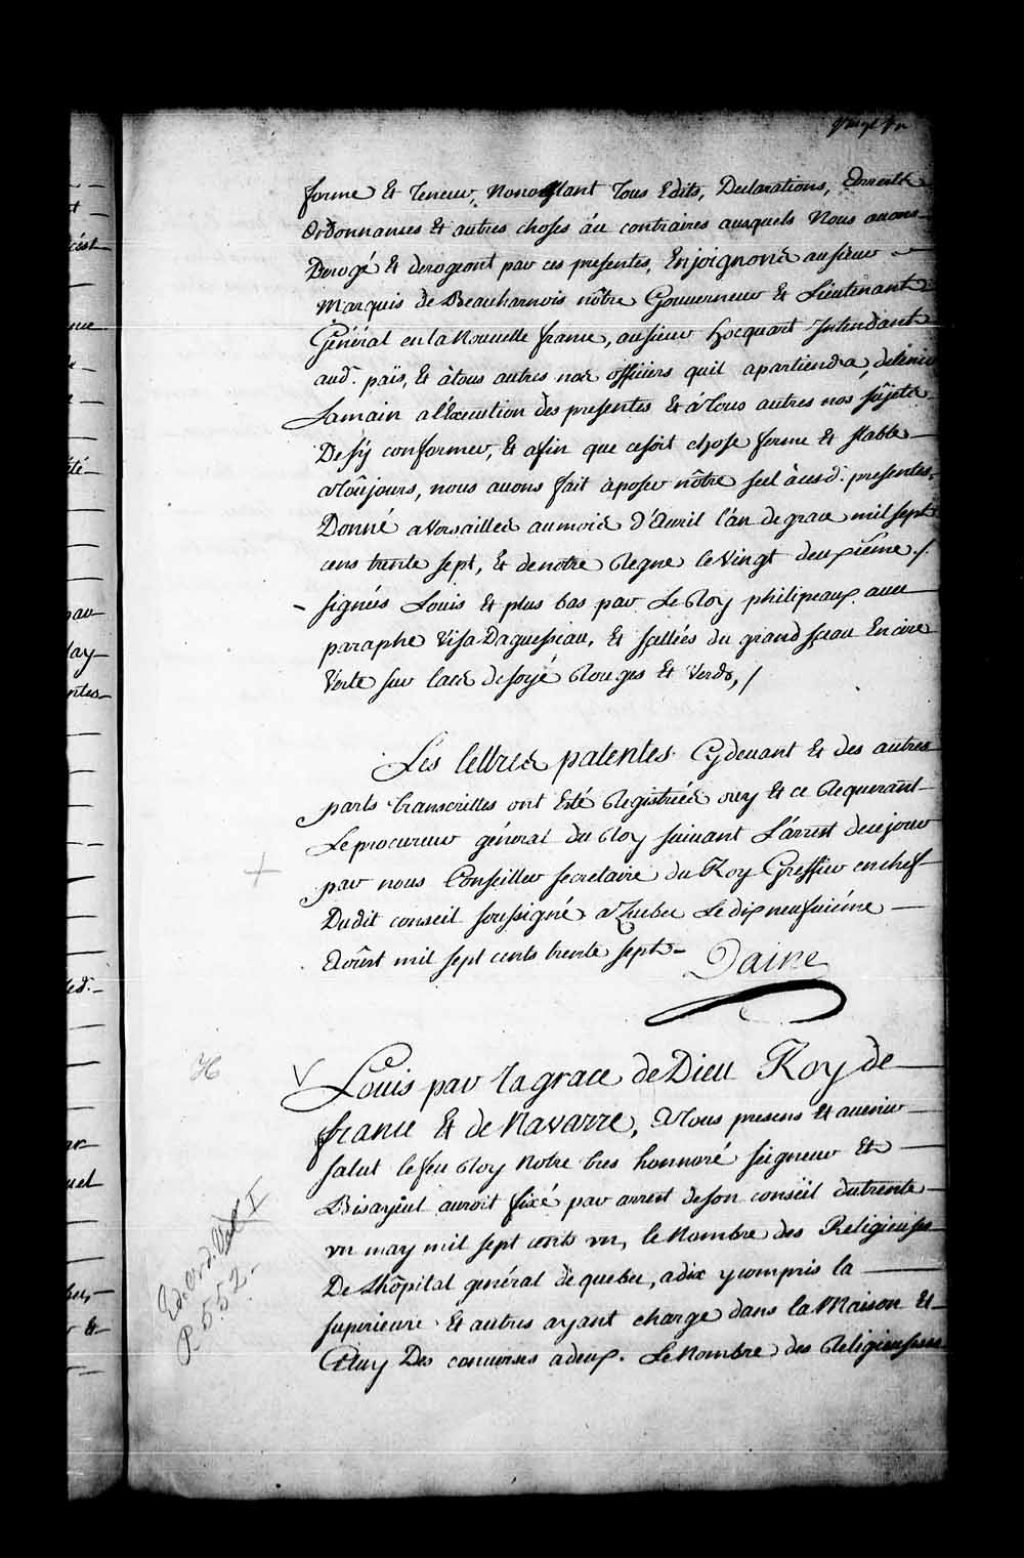 forme Et teneur, Nonobstant tous Edits, Declarations, arrests
Ordonnances Et autres choses áu contraires ausquels Nous auons
Derogé Et derogeont par ces presentes, Enjoignons ausieur
Marquis de Beauharnois nôtre Gouuerneur Et Lieutenant
Général en la Nouuelle france, ausieur hocquart Intendant
aud. païs, Et àtous autres nos officiers quil apartiendra, detenir
Lamain a l'Execution des presentes Et átous autres nos sujets
De s'y conformer, Et afin que cesoit chose ferme Et stable
atoûjours, nous auons fait àposer nôtre seel àcesd. presentes,
Donné aVersailles aumois d'Auril l'an de grace mil sept
cens trente sept, Et denotre Regne leVingt deuxiéme ./.
signées Louis Et plus bas par Le Roy philipeaux auec
paraphe Visa Daguesseau, Et scellées du grand sceau En cire
Verte sur lacs de soyé Rouges Et Verds, /
Les lettres patentes Cydeuant Et des autres
parts transcrittes ont Esté Registrées ouy Et ce Requerant
Le procureur général du Roy suiuant L'arrest decejour
par nous Conseiller secretaire du Roy Greffier en chef
Dudit conseil soussigné aQuebec Le dix neufuiéme
Aoûst mil sept cents trente sept
Daine
H
Louis par la grace de Dieu Roy de
france Et de Navarre, Atous presens Et auenir
salut le feu Roy Notre tres honnoré seigneur Et
Bisayeul auroit fixé par arrest deson conseil dutrente
vn may mil sept cents vn, le Nombre des Religieuses
De L'hôpital général de quebec, adix ycompris la
superieure Et autres ayant charge dans la Maison Et
Celuy Des conuerses adeux. Le Nombre des Religieuses
Ed. Ord. Vol I
P. 552.